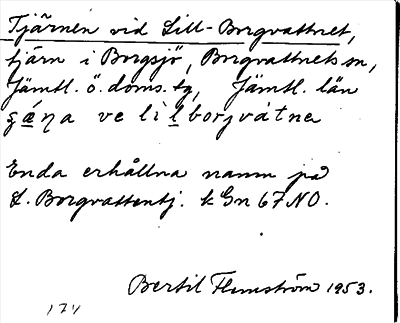 Tjärnen vid Lill-Borgvattnet,
tjärn i Borgsjö, Borgvattnets sn,
Jämtl. ö. doms. tg, Jämtl. län
ve lil borgvátne
Enda erhållna namn på
L. Borgvattentj. k Gn 67 NO.
Bertil Flemström 1953.
174